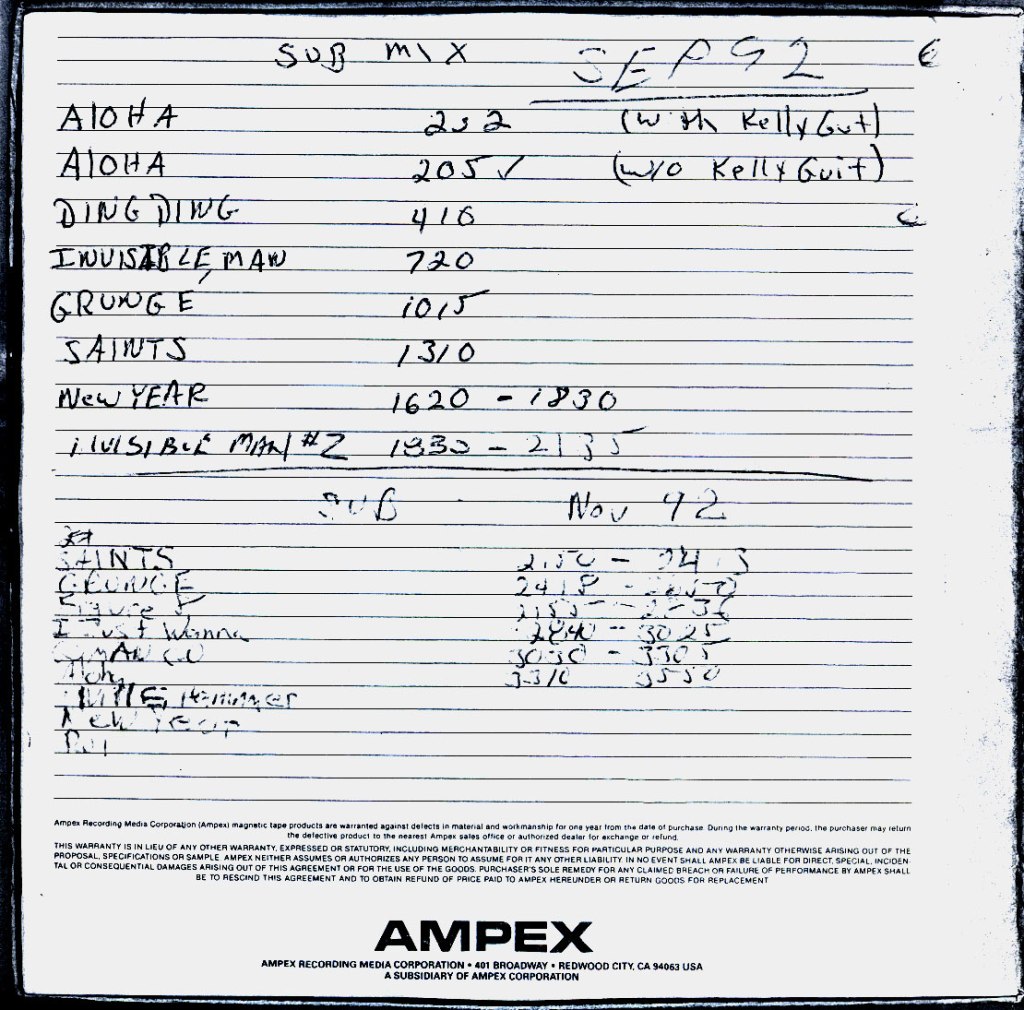 SUB MIX SEP 92
ALOHA 232 (with Kelly Gut)
ALOHA 205 ✓ (w/o Kelly Guit)
DING DING 410
INVISIBLE MAN 720
GRUNGE 1015
SAINTS 1310
New YEAR 1620 - 1830
INVISIBLE MAN #2 1830 - 2135
SUB Nov 92
SAINTS
GRUNGE 2418 -
Figure
I Just Wanna 2840 - 3025
3030 - 3305
Aloha 3310 3550
Hammer
New Year
Ampex Recording Media Corporation (Ampex) magnetic tape products are warranted against defects in material and workmanship for one year from the date of purchase. During the warranty period, the purchaser may return
the defective product to the nearest Ampex sales office or authorized dealer for exchange or refund.
THIS WARRANTY IS IN LIEU OF ANY OTHER WARRANTY, EXPRESSED OR STATUTORY, INCLUDING MERCHANTABILITY OR FITNESS FOR PARTICULAR PURPOSE AND ANY WARRANTY OTHERWISE ARISING OUT OF THE
PROPOSAL, SPECIFICATIONS OR SAMPLE. AMPEX NEITHER ASSUMES OR AUTHORIZES ANY PERSON TO ASSUME FOR IT ANY OTHER LIABILITY. IN NO EVENT SHALL AMPEX BE LIABLE FOR DIRECT, SPECIAL, INCIDEN-
TAL OR CONSEQUENTIAL DAMAGES ARISING OUT OF THIS AGREEMENT OR FOR THE USE OF THE GOODS. PURCHASER'S SOLE REMEDY FOR ANY CLAIMED BREACH OR FAILURE OF PERFORMANCE BY AMPEX SHALL
BE TO RESCIND THIS AGREEMENT AND TO OBTAIN REFUND OF PRICE PAID TO AMPEX HEREUNDER OR RETURN GOODS FOR REPLACEMENT
AMPEX
AMPEX RECORDING MEDIA CORPORATION • 401 BROADWAY • REDWOOD CITY, CA 94063 USA
A SUBSIDIARY OF AMPEX CORPORATION